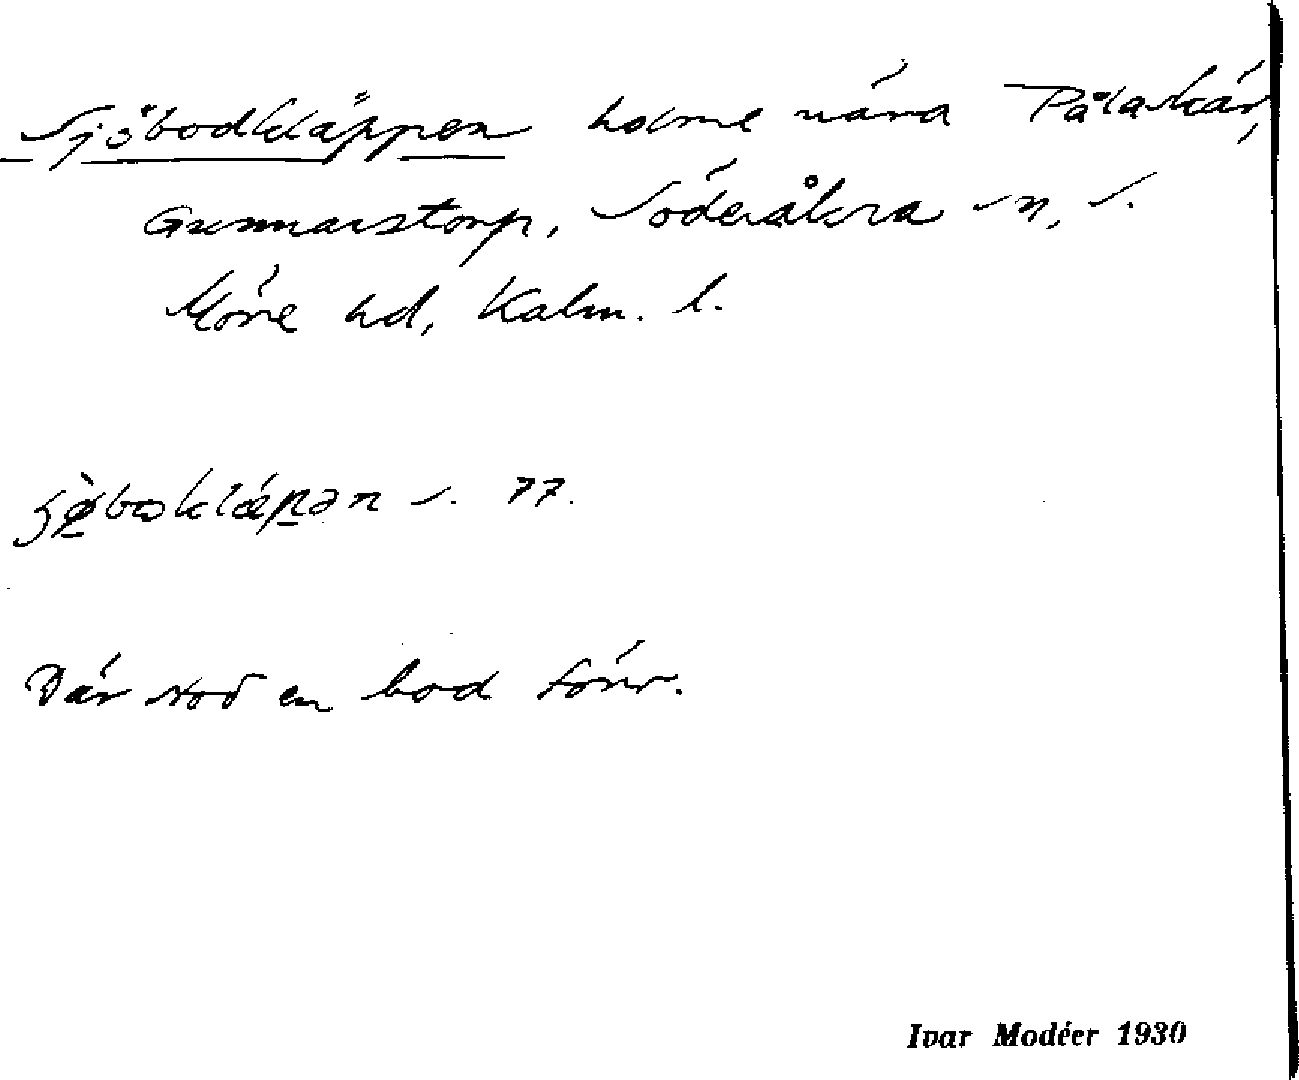 Sjöbodkläppen holme nära Pålaskär,
Gunnarstorp, Söderåkra sn, S.
Möre hd, Kalm. l.
s. 77.
Där stod en bod förr.
Ivar Modéer 1930